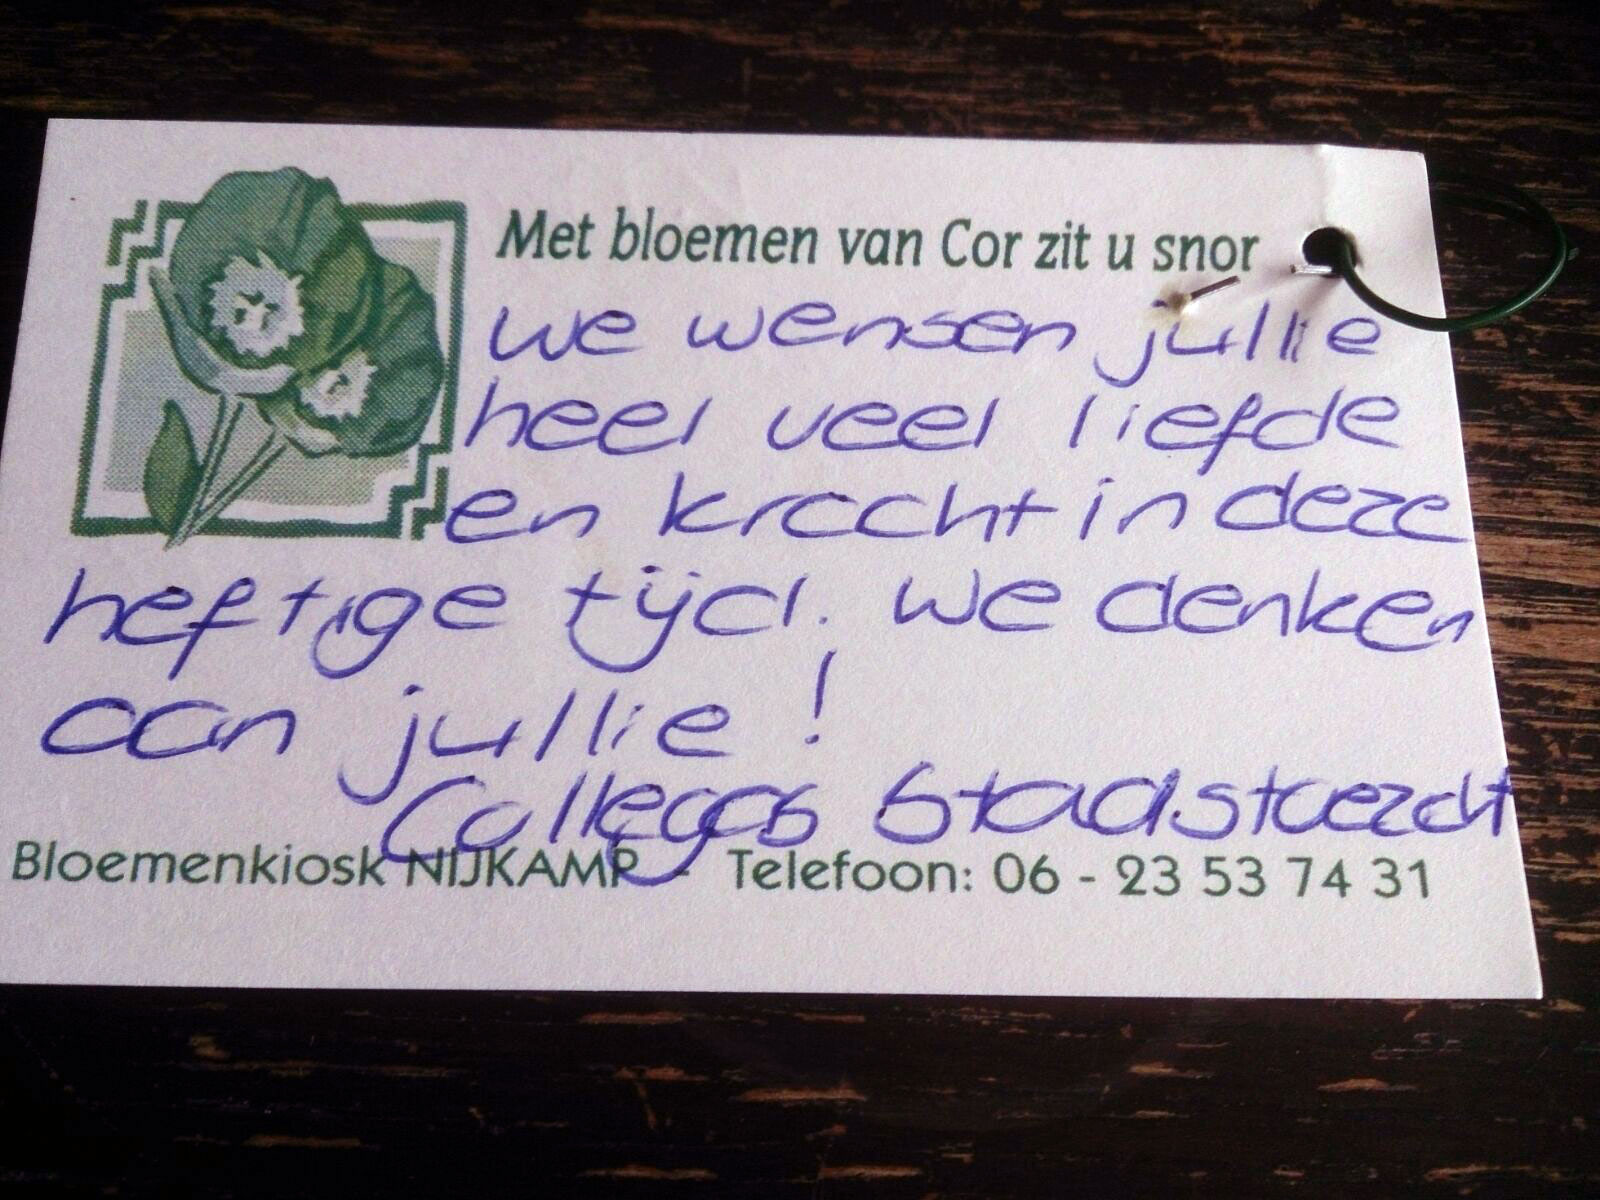 Met bloemen van Cor zit u snor
we wensen jullie
heel veel liefde
en kracht in deze
heftige tijd. We denken
aan jullie!
Collegas Stadstoezicht
Bloemenkiosk NIJKAMP - Telefoon: 06 - 23 53 74 31